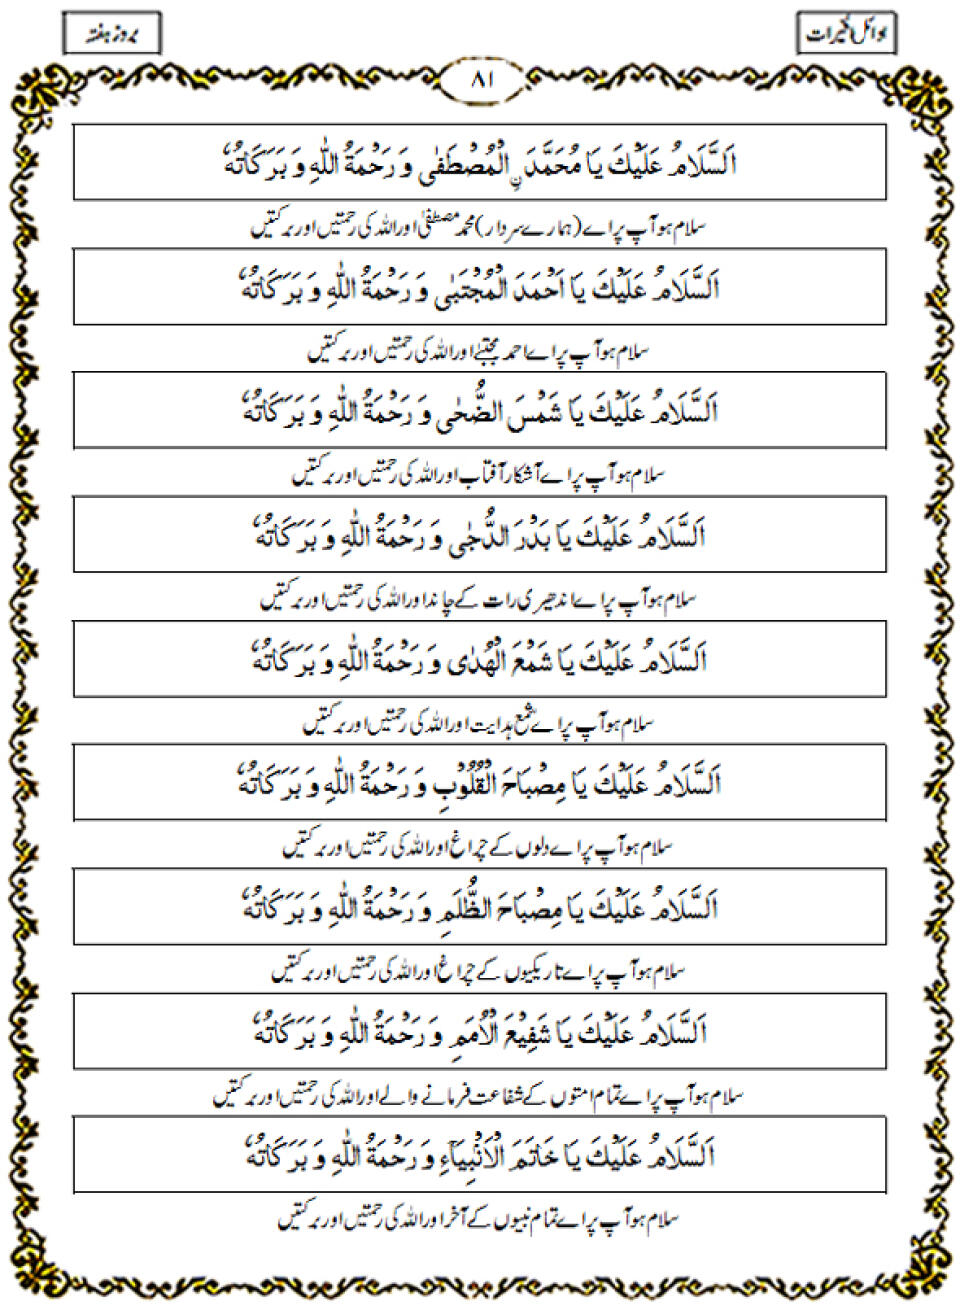 اوائل الخیرات
بروز ہفتہ
۸۱
اَلسَّلَامُ عَلَیْكَ یَا مُحَمَّدَنِ الْمُصْطَفٰی وَ رَحْمَةُ اللّٰهِ وَ بَرَکَاتُهٗ
سلام ہو آپ پر اے (ہمارے سردار) محمد مصطفیٰ اور اللہ کی رحمتیں اور برکتیں
اَلسَّلَامُ عَلَیْكَ یَا اَحْمَدَ الْمُجْتَبٰی وَ رَحْمَةُ اللّٰهِ وَ بَرَکَاتُهٗ
سلام ہو آپ پر اے احمد مجتبےٰ اور اللہ کی رحمتیں اور برکتیں
اَلسَّلَامُ عَلَیْكَ یَا شَمْسَ الضُّحٰی وَ رَحْمَةُ اللّٰهِ وَ بَرَکَاتُهٗ
سلام ہو آپ پر اے آشکار آفتاب اور اللہ کی رحمتیں اور برکتیں
اَلسَّلَامُ عَلَیْكَ یَا بَدْرَ الدُّجٰی وَ رَحْمَةُ اللّٰهِ وَ بَرَکَاتُهٗ
سلام ہو آپ پر اے اندھیری رات کے چاند اور اللہ کی رحمتیں اور برکتیں
اَلسَّلَامُ عَلَیْكَ یَا شَمْعَ الْهُدٰی وَ رَحْمَةُ اللّٰهِ وَ بَرَکَاتُهٗ
سلام ہو آپ پر اے شمع ہدایت اور اللہ کی رحمتیں اور برکتیں
اَلسَّلَامُ عَلَیْكَ یَا مِصْبَاحَ الْقُلُوْبِ وَ رَحْمَةُ اللّٰهِ وَ بَرَکَاتُهٗ
سلام ہو آپ پر اے دلوں کے چراغ اور اللہ کی رحمتیں اور برکتیں
اَلسَّلَامُ عَلَیْكَ یَا مِصْبَاحَ الظُّلَمِ وَ رَحْمَةُ اللّٰهِ وَ بَرَکَاتُهٗ
سلام ہو آپ پر اے تاریکیوں کے چراغ اور اللہ کی رحمتیں اور برکتیں
اَلسَّلَامُ عَلَیْكَ یَا شَفِیْعَ الْاُمَمِ وَ رَحْمَةُ اللّٰهِ وَ بَرَکَاتُهٗ
سلام ہو آپ پر اے تمام امتوں کے شفاعت فرمانے والے اور اللہ کی رحمتیں اور برکتیں
اَلسَّلَامُ عَلَیْكَ یَا خَاتَمَ الْاَنْبِیَآءِ وَ رَحْمَةُ اللّٰهِ وَ بَرَکَاتُهٗ
سلام ہو آپ پر اے تمام نبیوں کے آخر اور اللہ کی رحمتیں اور برکتیں